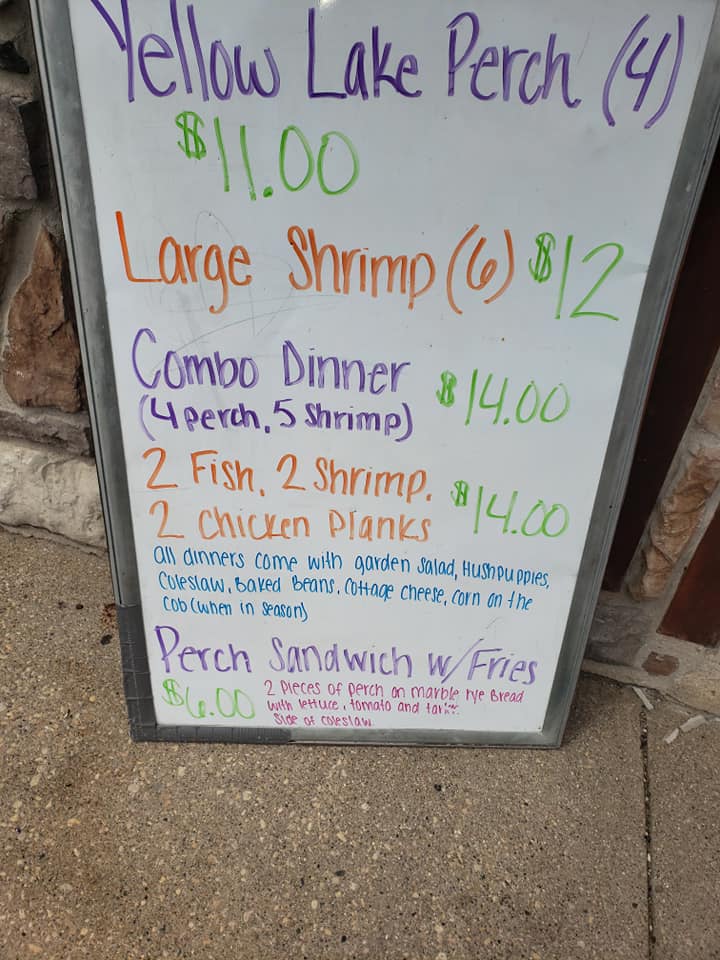 Yellow Lake Perch (4)
$11.00
Large Shrimp (6) $12
Combo Dinner $14.00
(4 perch, 5 Shrimp)
2 Fish, 2 Shrimp, $14.00
2 Chicken Planks
all dinners come with garden Salad, Hushpuppies,
Coleslaw, Baked Beans, Cottage cheese, corn on the
Cob (when in Season)
Perch Sandwich w/Fries
$6.00 2 Pieces of perch on marble rye Bread
with lettuce, tomato and
Side of coleslaw.